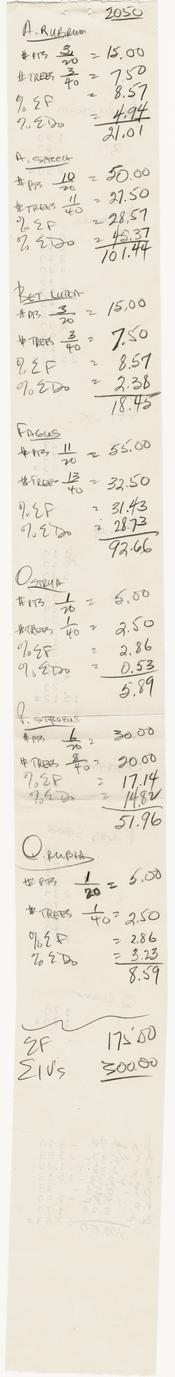 2050
A. RUBRUM
# PTS 3/20 = 15.00
# TREES 3/40 = 7.50
% ΣF = 8.57
% ΣDo = 4.94
21.01
A. SACCH
# PTS 10/20 = 50.00
# TREES 11/40 = 27.50
% ΣF = 28.57
% ΣDo = 45.37
101.44
BET LUTEA
# PTS 3/20 = 15.00
# TREES 3/40 = 7.50
% ΣF = 8.57
% ΣDo = 2.38
18.45
FAGUS
# PTS 11/20 = 55.00
# TREES 13/40 = 32.50
% ΣF = 31.43
% ΣDo = 28.73
92.66
OSTRYA
# PTS 1/20 = 5.00
# TREES 1/40 = 2.50
% ΣF = 2.86
% ΣDo = 0.53
5.89
P. STROBUS
# PTS 6/20 = 30.00
# TREES 8/40 = 20.00
% ΣF = 17.14
% ΣDo = 14.82
51.96
Q. RUBRA
# PTS 1/20 = 5.00
# TREES 1/40 = 2.50
% ΣF = 2.86
% ΣDo = 3.23
8.59
ΣF 175.00
ΣIV's 300.00